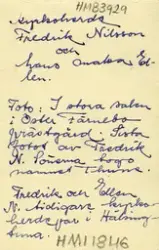 HM83929
kyrkoherde
Fredrik Nilsson
och
hans maka El-
len.
Foto: I stora salen
i Öster Färnebo
prästgård. Sista
fotot av Fredrik
N. Sönerna togo
namnet Thunve.
Fredrik och Ellen
N. tidigare kyrko-
herdepar i Hälsing-
tuna.
HM11846